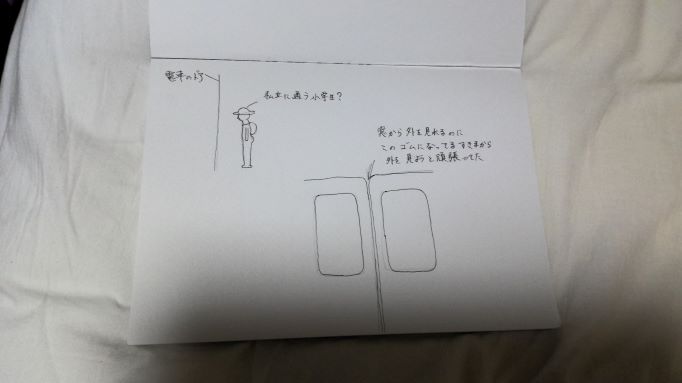 電車のドア
私立に通う小学生？
窓から外を見れるのに
このゴムになってるすきまから
外を見ようと頑張ってた